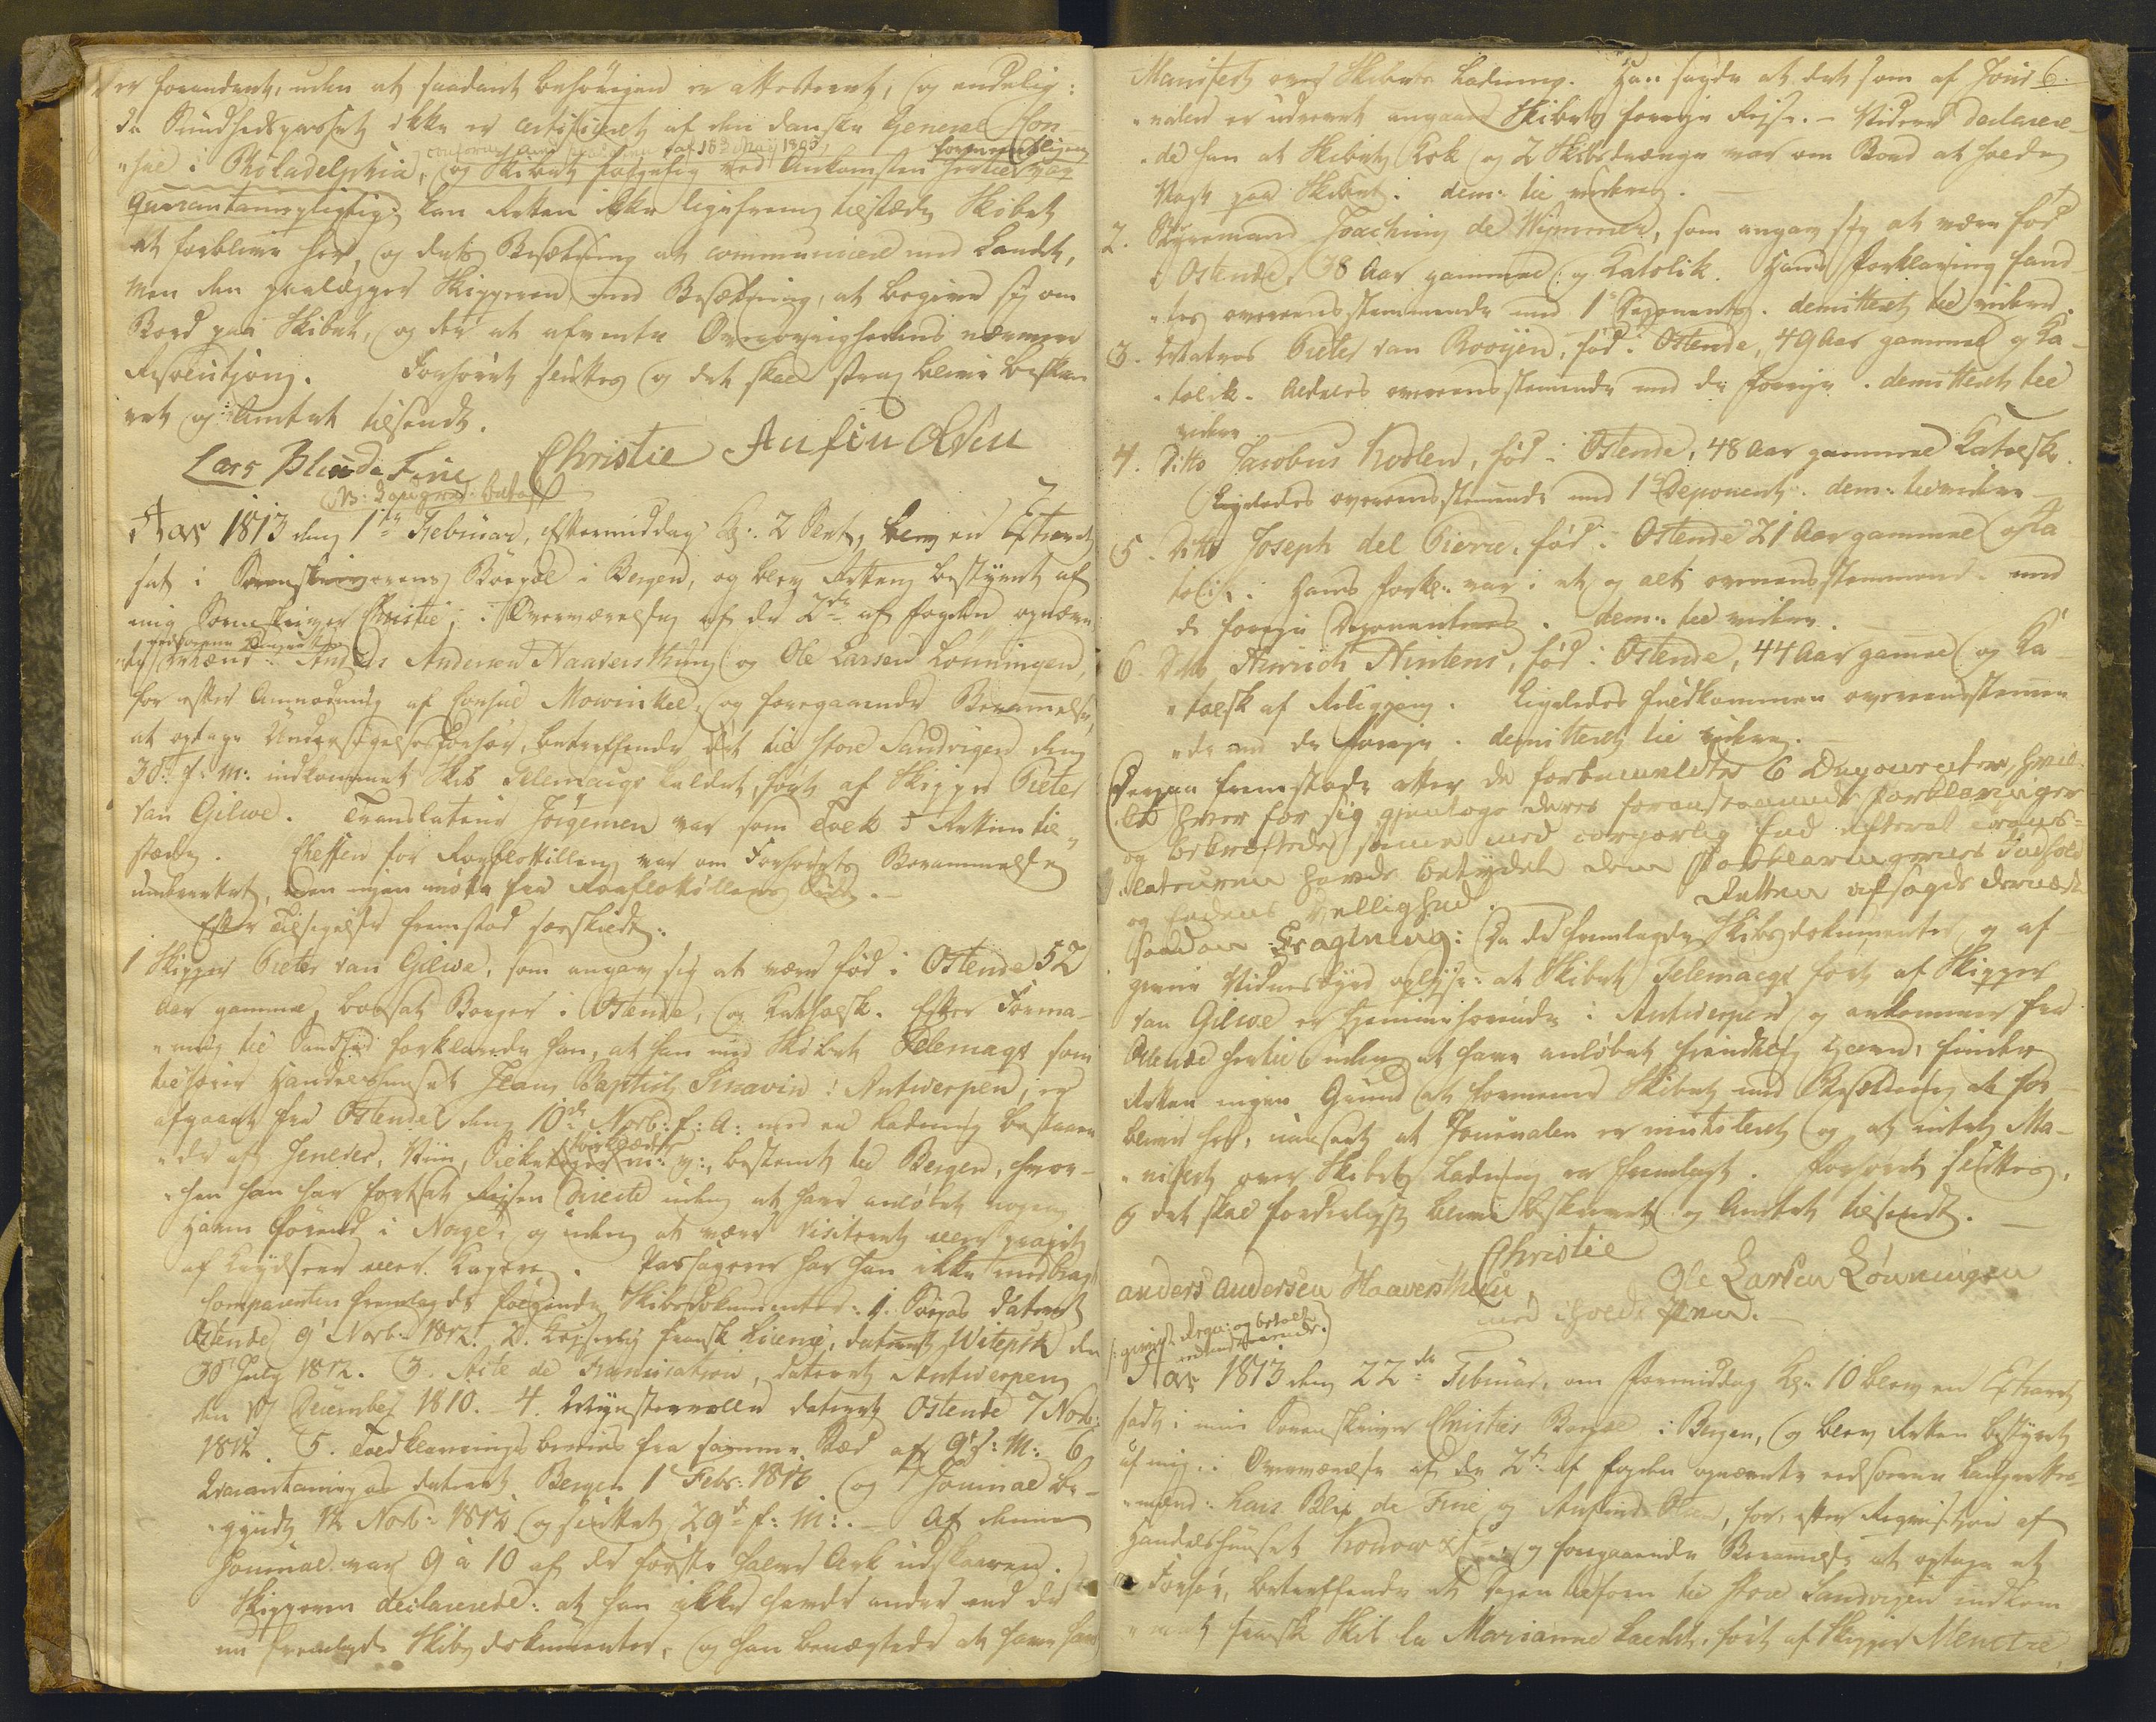 er forandret, uden at saadant behörigen er attesteret, og endelig:
da Sundhedspasset ikke er certificeret af den danske General Con-
conform med pladsen af 18 May 1805,
"sul i Philadelphia, og Skibet folgelig ved Ankomsten hertil var formentligen
Quarantainepligtig; kan Retten ikke ligefrem tilstæde Skibet
at forblive her, og dets Besætning at communicere med Landet,
men den paalægger Skipperen med Besætning, at begive sig om
Bord paa Skibet, og der at afvente Overøvrighedens nærmere
Resolution. Forhöret sluttes og det skal strax blive beskre-
vet og Amtet tilsendt.
Christie Anfin Olsen
Lars Blix de Fine
NB: Beskrev: betalt
Aar 1813 den 1te Februar, Eftermiddag Kl: 2 Slet, blev en Extraret
sat i Sorenskriverens Böepæl i Bergen, og blev Retten bestyret af
mig Sorenskriver Christie, i Overværelse af de 2de af Fogden opnævn-
edsvorne Laugrettes
"te Mænd: Anders Andersen Haaversthun og Ole Larsen Lonningen,
for efter Anmodning af Consul Mowinkel, og foregaaende Berammelse,
at optage Undersögelsesforhör, betreffende det til Store Sandvigen den
30: f: M: indkommet Skib Telemaqe kaldet, fört af Skipper Pieter
van Gilwe. Translateur Jörgensen var som Tolk i Retten til-
stæde. Cheffen for Roeflotillen var om Forhörets Berammelse
underrettet, men ingen mötte fra Roeflotillens Side.-
Efter Tilsigelse fremstod særskildt:
1 Skipper Pieter van Gilwe, som angav sig at være föd i Ostende 52
Aar gammel, bosat Borger i Ostende, og Katholsk. Efter Forma-
"ning til Sandhed forklarede han, at han med Skibet Telemaqe som
tilhörer Handelshuset Jean Baptist Sinavin i Antwerpen, er
afgaaet fra Ostende den 10de Novb: f: A: med en Ladning bestaaen-
"de af Genever, Viin, m: v:, bestemt til Bergen, hvor-
"hen han har fortsat Reisen directe uden at have anlöbet nogen
Havn förend i Norge, og uden at være visiteret eller prajet
af Krydsere eller Kapere. Passagerer har han ikke medbragt.
Comparenten fremlagde fölgende Skibsdokumenter: 1. Söepas dateret
Ostende 9 Novb: 1812. 2. Keyserlig fransk Licence, dateret Witepsk den
30 July 1812. 3. Acte de Francisation, dateret Antwerpen
den 10 December 1810.- 4. Mynsterrolle dateret Ostende 7 Novb:
1812. 5. Toldklareringsbeviis fra samme Sted af 9 s: M: 6
Quarantainepas dateret Bergen 1 Febr: 1813 og 7 Journal be-
"gyndt 12 Novb: 1812 og sluttet 29de f: M:.- Af denne
Journal var 9 à 10 af de förste halve Ark udskaaren.
Skipperen declarerede: at han ikke havde andre end de
nu fremlagde Skibsdokumenter, og han benægtede at have havt
6.
Manifest over Skibets Ladning. Han sagde at det som af Jour-
"nalen er udrevet angaaer Skibets forrige Rejse.- Videre declarere-
"de han at Skibets Kok og 2 Skibsdrænge var om Bord at holde
Vagt paa Skibet. dem: til videre.
2. Styrmand Joachim de Wimmer, som angav sig at være föd
i Ostende, 38 Aar gammel og Katolik. Hans Forklaring fand-
"tes overeensstemmende med 1 Deponents. demitteret til videre.
3. Matros Pieter van Rooijen, föd i Ostende, 49 Aar gammel og Ka-
"tolik. Aldeles overeensstemmende med de forrige. demitteret til
videre
4. Ditto Jacobus Kosten, föd i Ostende, 48 Aar gammel Katolsk.
Ligeledes overeensstemmende med 1 Deponent. dem: til videre
5. Ditto Joseph del Pierre, föd i Ostende 21 Aar gammel og Ka
tolik. Hans Forkl: var i et og alt overeensstemmende med
de forrige Deponenters. dem: til videre.
6. Ditto Hinrich Hintens, föd i Ostende, 44 Aar gammel og Ka-
"tolsk af Religion. Ligeledes fuldkommen overeensstemmen
"de med de forrige. demitteret til videre.
Derpaa fremstode atter de forbemeldte 6 Deponenter, hvil-
"ke hver for sig gjentoge deres foranstaaende Forklaringer
og bekræftede samme med corporlig Eed efterat trans-
"lateuren havde betydet dem Forklaringernes Indhold
og Eedens Vellighed. Retten afsagde dernæst
saadan Eragtning: Da de fremlagde Skibsdokumenter og af-
givne Vidnesbyrd oplyse: at Skibet Telemaqe fört af Skipper
van Gilwe er hjemmehörende i Antwerpen og ankommen fra
Ostende hertil uden at have anlöbet fiendtlig Havn, finder
Retten ingen Grund at formene Skibet med Besætning at for-
blive her, uanseet at Journalen er mutileret og at intet Ma-
"nifest over Skibets Ladning er fremlagt. Forhöret sluttes,
og det skal forderligst blive beskrevet og Amtet tilsendt.
Christie
anders andersen Haaversthun Ole Larsen Lönningen
med iholdt Pen.
Aar 1813 den 22de Februar, om Formiddag Kl: 10 blev en Extraret
sadt i min Sorenskriver Christies Boepæl i Bergen, og blev Retten bestyret
af mig, i Overværelse af de 2de af Fogden opnævnte edsvorne Laugrettes-
"mænd: Lars Blix de Fine og Anfind Olsen, for, efter Requisition af
Handelshuuset Konow & Co, og foregaaende Berammelse at optage et
Forhör, betreffende et Dagen tilforn til Store Sandvigen indkom-
"met fransk Skib la Marianne kaldet, fört af Skipper Menetre,